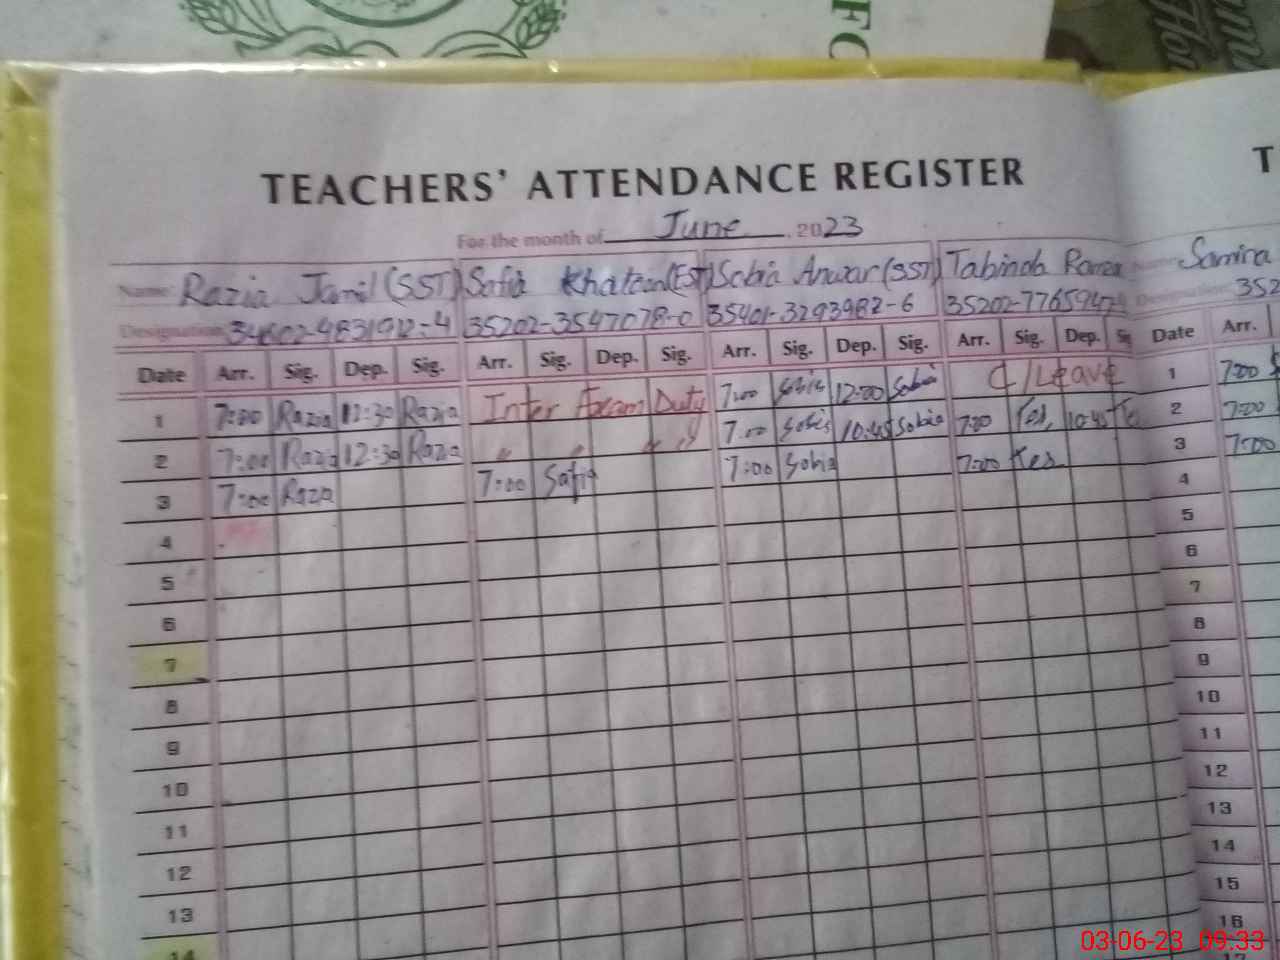 FC
TEACHERS' ATTENDANCE REGISTER
T
For the month of June 2023
Name: Razia Jamil (SST) Safia Khatoon (EST) Sobia Anwar (SST) Tabinda Name: Samina
Designation: 34602-4831912-4 35202-3547078-0 35401-3293982-6 35202-7765947 Designation: 352
Date Arr. Sig. Dep. Sig. Arr. Sig. Dep. Sig. Arr. Sig. Dep. Sig. Arr. Sig. Dep. Sig Date Arr.
1 7:00 Razia 12:30 Razia Inter Exam Duty 7:00 Sobia 12:00 Sobia C/Leave 1 7:00
2 7:00 Razia 12:30 Razia " " " " 7:00 Sobia 10:45 Sobia 7:00 10:45 2 7:00
3 7:00 Razia 7:00 Safia 7:00 Sobia 7:00 3 7:00
4 4
5 5
6 6
7 7
8 8
9 9
10 10
11 11
12 12
13 13
14 14
15
16
17
03-06-23 09:33